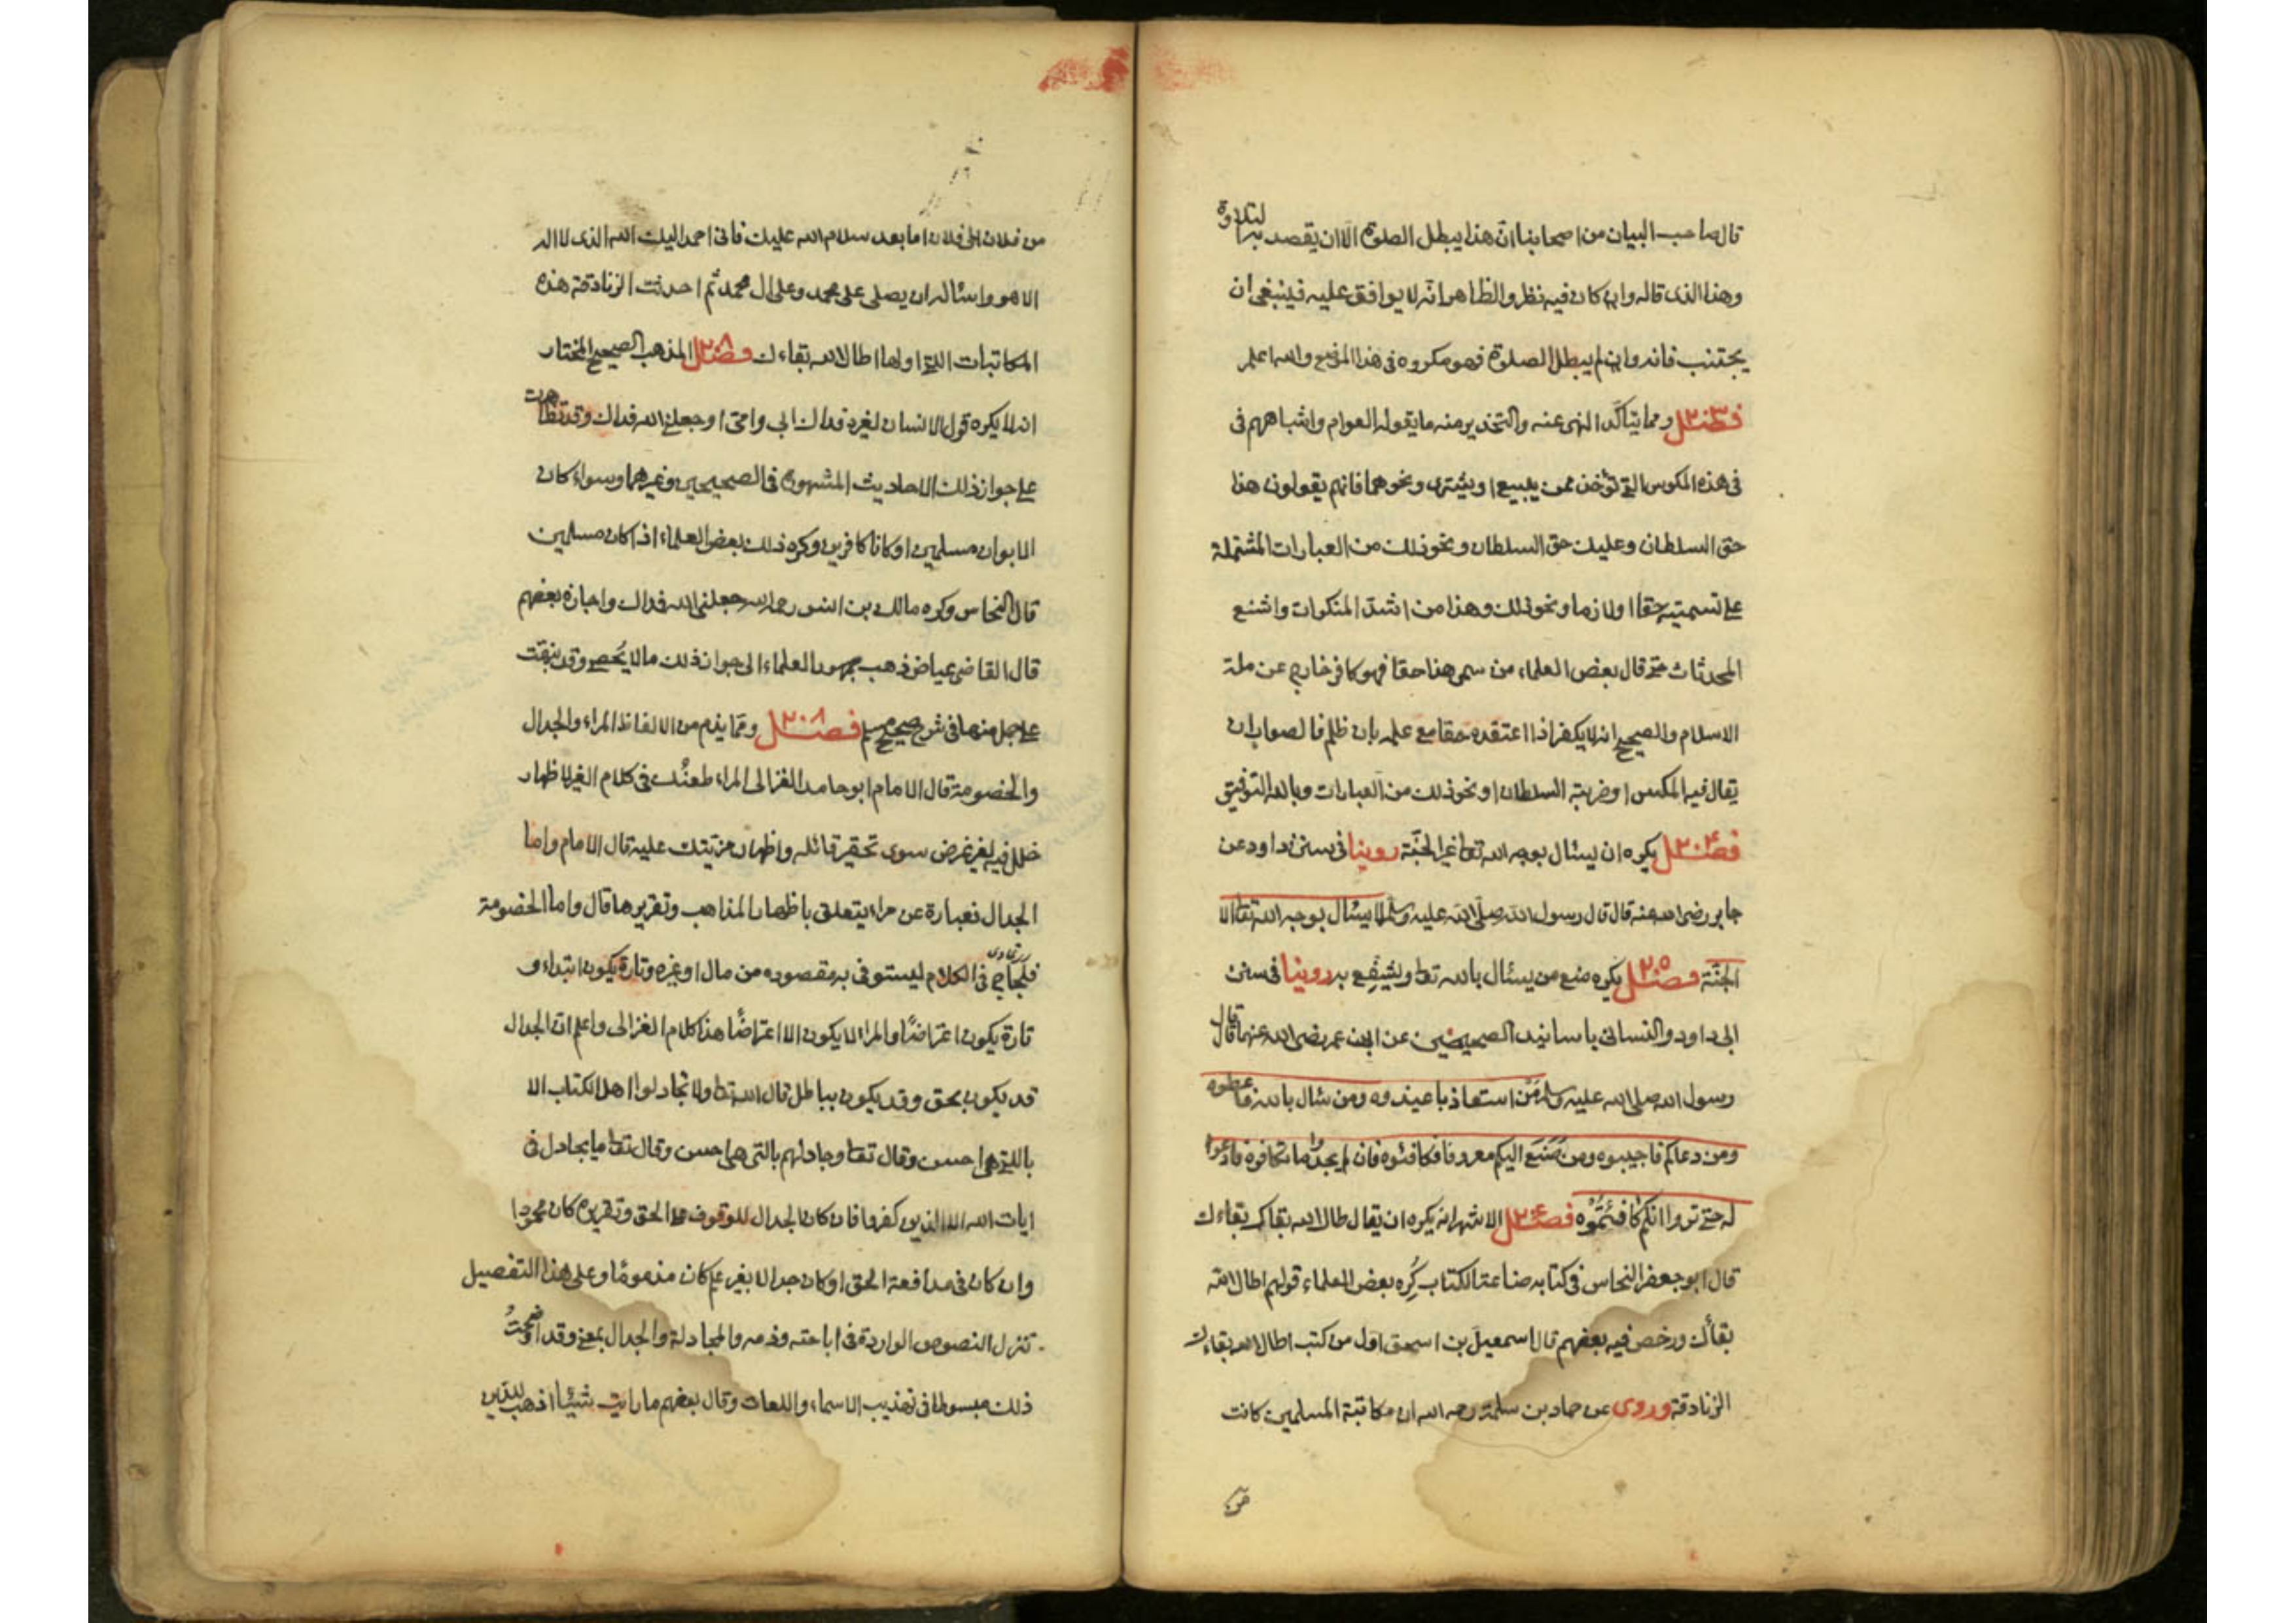 قال صاحب البيان من اصحابنا انّ هذا يبطل الصلوة الا ان يقصد به التلاوة
وهذا الذى قاله وان كان فيه نظر والظاهر انّه لا يوافق عليه فينبغى ان
يجتنب فانه وان لم يبطل الصلوة فهو مكروه فى هذا الموضع والله اعلم
فصل ٢٠٣ ومما يتاكّد النهى عنه والتحذير منه ما يقوله العوام واشباههم فى
فى هذه المكوس التى تؤخذ ممن يبيع او يشترى ونحوهما فانهم يقولون هذا
حق السلطان وعليك حق السلطان ونحو ذلك من العبارات المشتملة
على تسميته حقا او لازما ونحو ذلك وهذا من اشدّ المنكرات واشنع
المحدثات حتى قال بعض العلماء من سمى هذا حقا فهو كافر خارج عن ملة
الاسلام والصحيح انه لا يكفر اذا اعتقده حقا مع علمه بان ظلم فالصواب ان
يقال فيه المكس او ضريبة السلطان او نحو ذلك من العبارات وبالله التوفيق
فصل ٢٠٤ يكره ان يسئال بوجه الله تعا غير الجنّة روينا فى سنن داود عن
جابر رضى الله عنه قال قال رسول الله صلّى الله عليه وسلّم لا يسئال بوجه الله تعا الا
الجنّة فصل ٢٠٥ يكره منع من يسئال بالله تعا ويشفّع به روينا فى سنن
ابى داود والنسائى باسانيد الصحيحين عن ابن عمر رضى الله عنهما قال قال
رسول الله صلى الله عليه وسلم مَن استعاذ با عيذوه ومن سئال بالله فاعطوه
ومن دعاكم فاجيبوه ومن صَنَعَ اليكم معروفا فكافئوه فان لم يجدوا ما تكافوه فادعوا
له حتى تروا انكم كافَئتُمُوه فصل ٢٠٦ الاشهر انه يكره ان يقال طال الله بقاك بقاءك
قال ابو جعفر النحاس فى كتابه صناعة الكتاب كُرِه بعض العلماء قولهم اطال الله
بقاءك ورخص فيه بعضهم قال اسمعيل بن اسحق اوّل من كتب اطال الله بقاءك
الزنادقة وروى عن حماد بن سلمة رحمه الله ان مكاتبة المسلمين كانت
من
من فلان الى فلان اما بعد سلام الله عليك فانى احمد اليك الله الذى لا اله
الا هو واسئاله ان يصلى على محمد وعلى ال محمد ثم احدثت الزنادقة هذه
المكاتبات التى اولها اطال الله بقاءك فصل ٢٠٨ المذهب الصحيح المختار
انه لا يكره قول الانسان لغيره فداك ابى وامى او جعلنى الله فداك وقد تظاهرت
على جواز ذلك الاحاديث المشهورة فى الصحيحين وغيرهما وسواء كان
الابوان مسلمين او كانا كافرين وكره ذلك بعض العلماء اذا كان مسلمين
قال النحاس وكره مالك بن انس رحمه الله جعلنى الله فداك واجازه بعضهم
قال القاضى عياض ذهب جمهور العلماء الى جواز ذلك ما لا يُحصى وقد نبهت
على جمل منها فى شرح صحيح مسلم فصل ٢٠٨ ومما يذم من الالفاظ المراء والجدال
والخصومة قال الامام ابو حامد الغزالى المراء طعنُك فى كلام الغير لاظهار
خلل فيه لغير غرض سوى تحقير قائله واظهار مزيتك عليه قال الامام واما
الجدال فعبارة عن مراء يتعلق باظهار المذاهب وتقريرها قال واما الخصومة
فلجاج فى الكلام ليستوفى به مقصوده من مال او غيره وتارة يكون ابتداء و
تارة يكون اعتراضًا والمراء لا يكون الا اعتراضًا هذا كلام الغزالى واعلم انّ الجدال
قد يكون بحق وقد يكون بباطل قال الله تعا ولا تجادلوا اهل الكتاب الا
بالتى هى احسن وقال تعا وجادلهم بالتى هى احسن وقال تعا ما يجادل فى
ايات الله الا الذين كفروا فان كان الجدال للوقوف على الحق وتقريره كان محمودا
وان كان فى مدافعة الحق او كان جدالا بغير علم كان مذمومًا وعلى هذا التفصيل
تنزل النصوص الواردة فى اباحته وذمه والمجادلة والجدال بمعنى وقد اوضحتُ
ذلك مبسوطا فى تهذيب الاسماء واللغات وقال بعضهم ما رايت شيئا اذهب للدّين